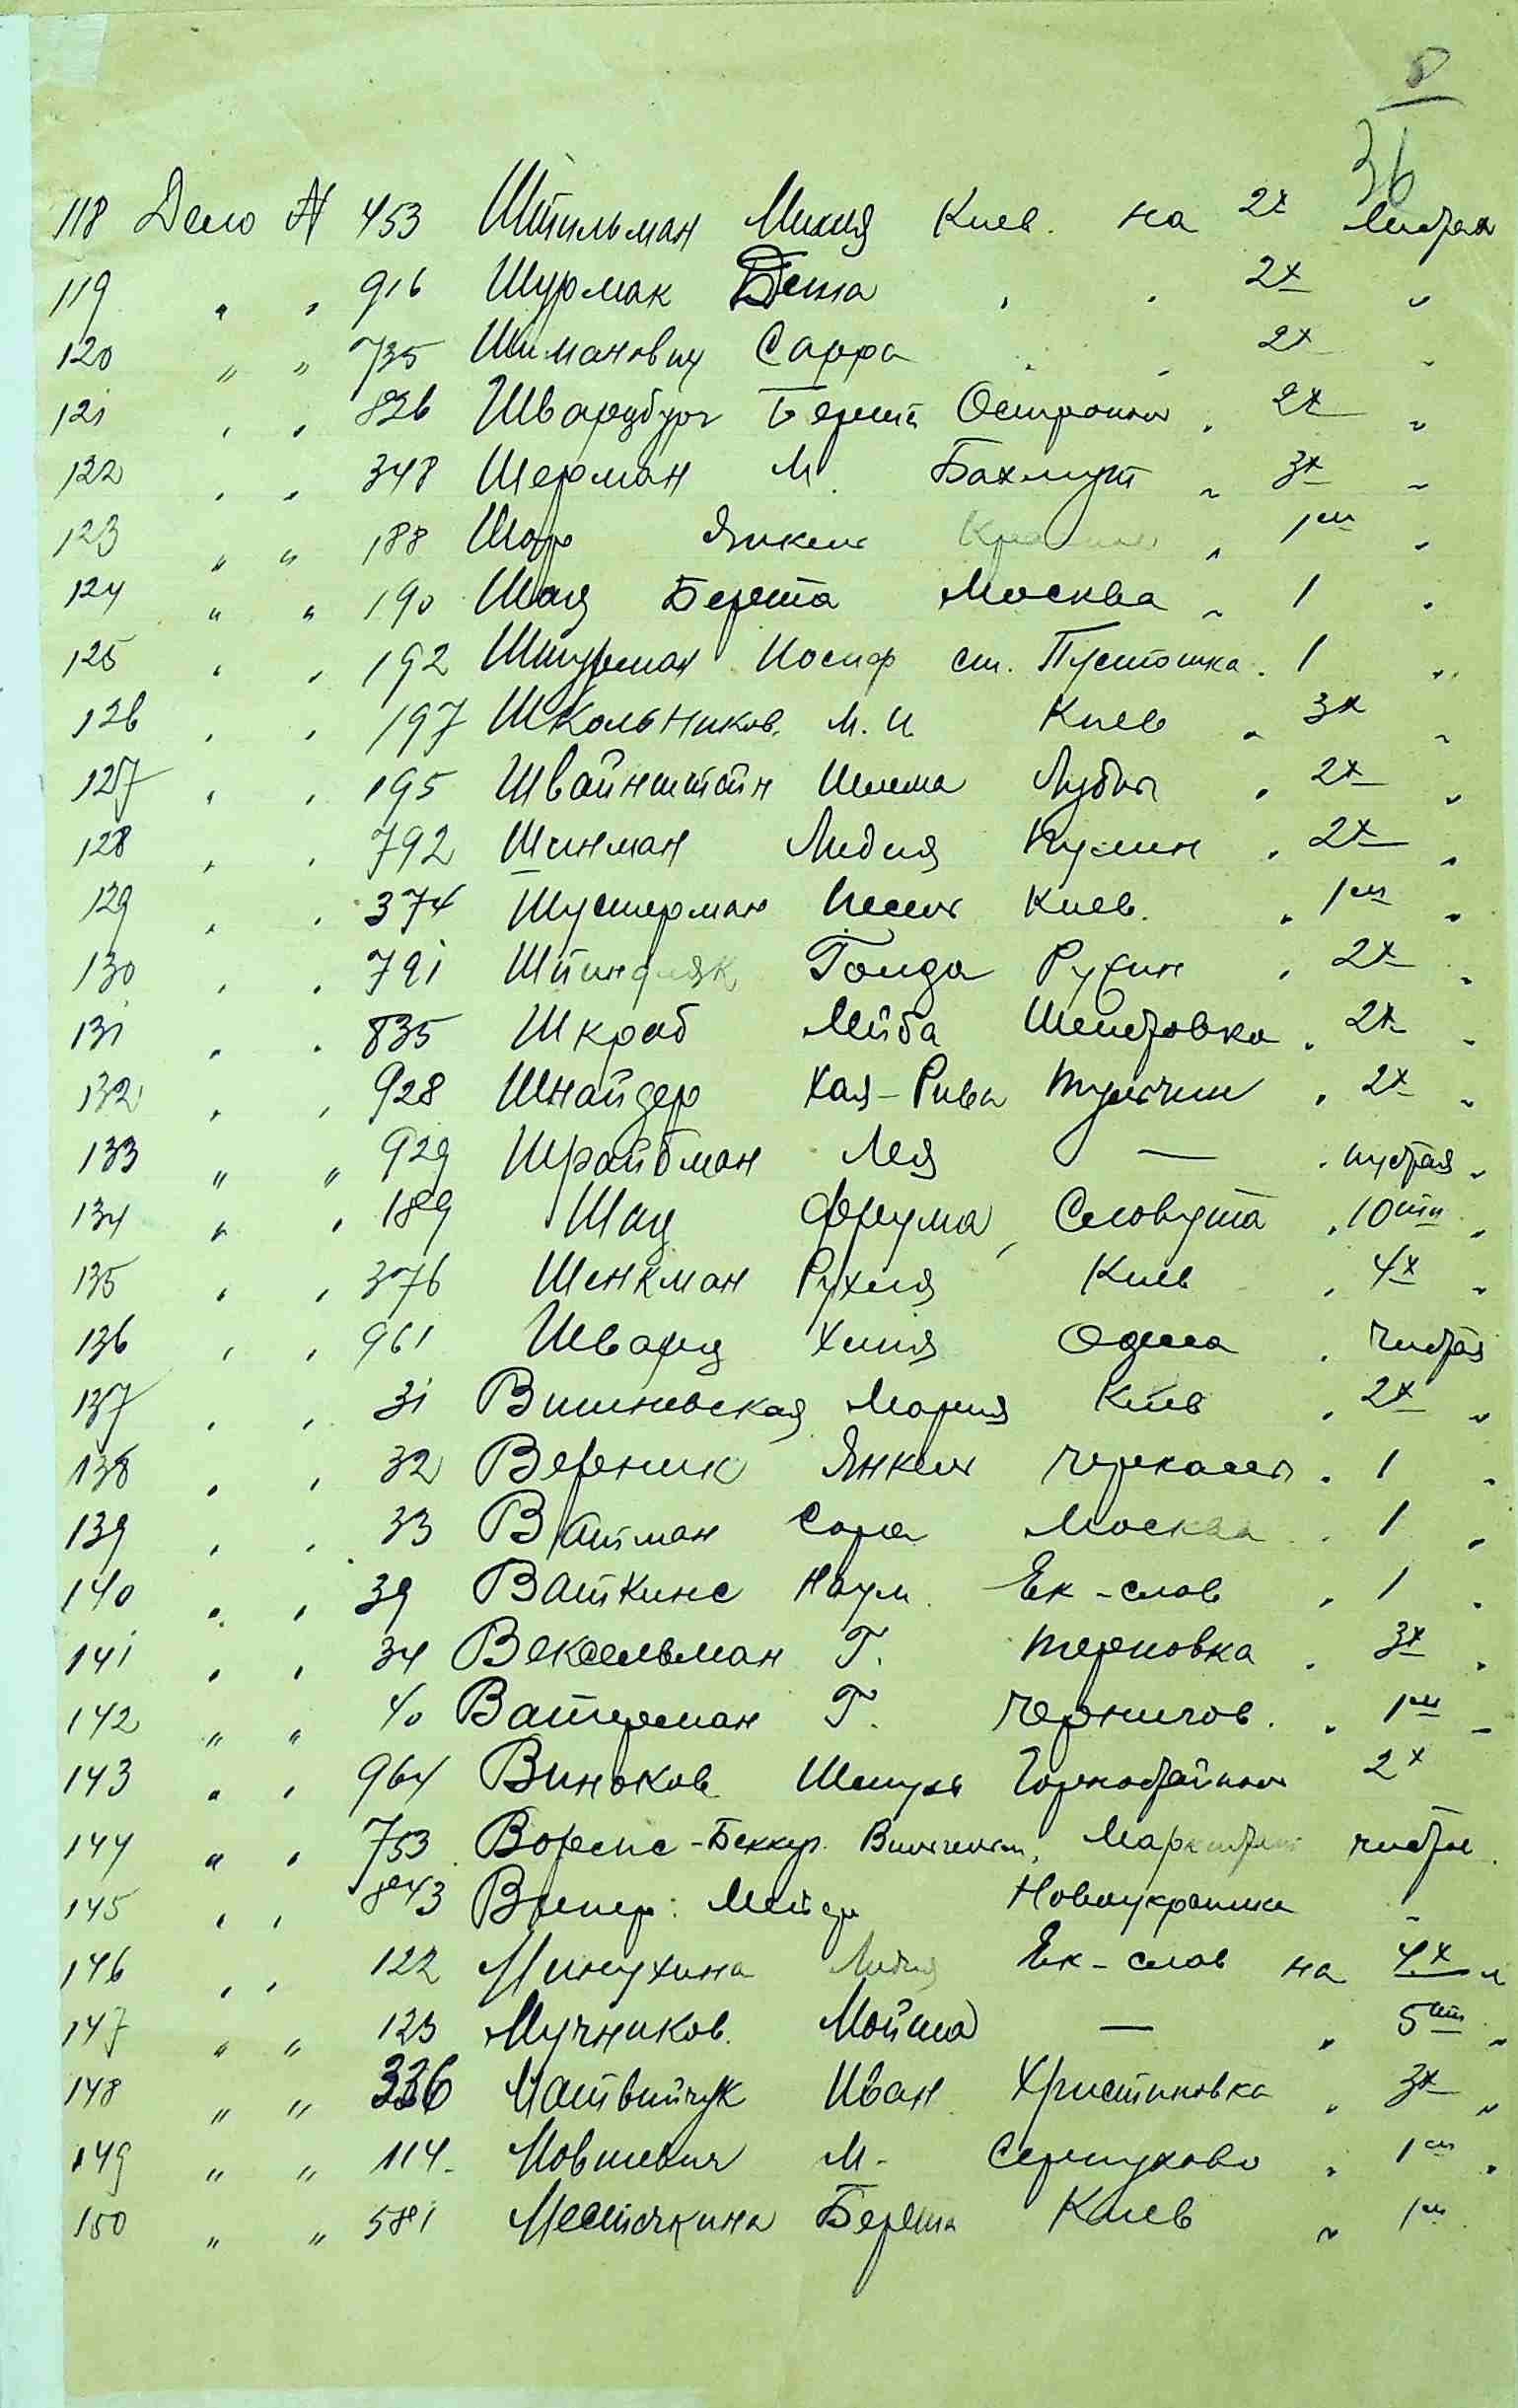 8
36
118 Дело № 453 Штильман Михля Киев. на 2х листах
119 " " 916 Шурман Бетя " " 2х "
120 " " 735 Шиманович Сарра " " 2х "
121 " " 826 Шварцбург Берта " 2х "
122 " " 348 Шерман М. Бахмут " 3х "
123 " " 188 Шор Янкель " 1ом "
124 " " 190 Шац Берта Москва " 1 "
125 " " 192 Штурман Иосиф ст. Пустошка " 1 "
126 " " 197 Школьников. М. И. Киев " 3х "
127 " " 195 Швайнштейн Шлема Лубны " 2х "
128 " " 792 Шинман Лидия " 2х "
129 " " 374 Шустерман Киев. " 1ом "
130 " " 791 Голда Ружин " 2х "
131 " " 835 Шкраб Лейба Шепетовка " 2х "
132 " " 928 Шнайдер Хая-Рива Тульчин " 2х "
133 " " 929 Шрайбман Лея — " "
134 " " 189 Шац Фрума, Славута " 10ти "
135 " " 376 Шенкман Рухля Киев " 4х "
136 " " 961 Шварц Одесса "
137 " " 31 Вишневская Мария Киев " 2х "
138 " " 32 Верник Янкель Черкассы " 1 "
139 " " 33 Вайтман Сара Москва " 1 "
140 " " 39 Ваткинс Наум. Ек-слав " 1 "
141 " " 34 Вексельман Г. Терновка " 3х "
142 " " 40 Ватерман Г. Чернигов. " 1ом "
143 " " 964 Виноков 2х
144 " " 753 Беккер.
145 " " 843 Новоукраинка "
146 " " 122 Минухина Лидия Ек-слав на 4х л
147 " " 123 Мучников. Мойша — " 5ти "
148 " " 336 Матвийчук Иван Христиновка " 3х "
149 " " 114. Мовшевич М. Серпухово " 1ом "
150 " " 581 Местечкина Берта Киев " 1ом